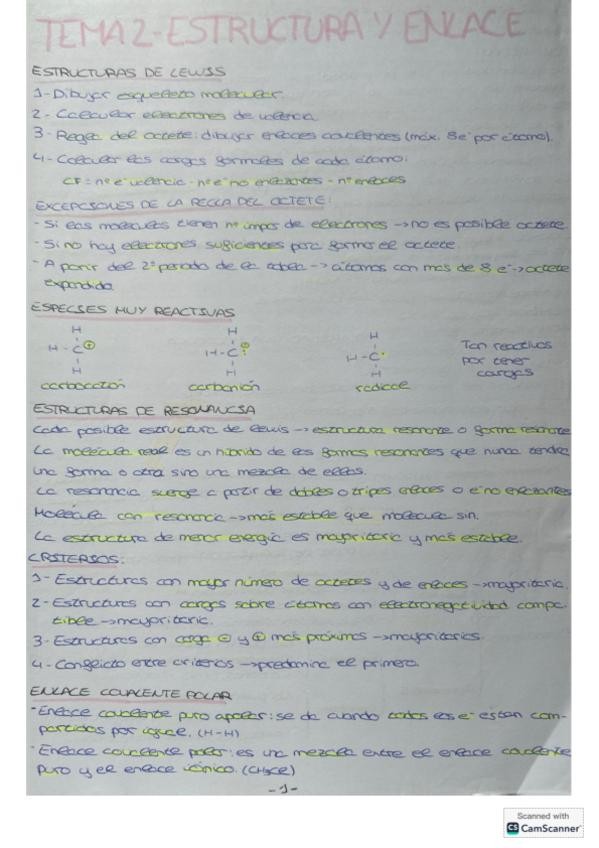 TEMA 2-ESTRUCTURA Y ENLACE
ESTRUCTURAS DE LEWIS
1- Dibujar esqueleto molecular.
2- Calcular electrones de valencia.
3- Regla del octeto: dibujar enlaces covalentes (máx. 8 e⁻ por átomo).
4- Calcular las cargas formales de cada átomo:
CF = nº e⁻ valencia - nº e⁻ no enlazantes - nº enlaces
EXCEPCIONES DE LA REGLA DEL OCTETO:
- Si las moléculas tienen nº impar de electrones → no es posible octeto
- Si no hay electrones suficientes para formar el octeto.
- A partir del 2º periodo de la tabla → átomos con más de 8 e⁻ → octeto
expandido.
ESPECIES MUY REACTIVAS
H H H
H - C ⊕ H - C ⊖ H - C · Tan reactivos
por tener
H H H cargas
carbocatión carbanión radical
ESTRUCTURAS DE RESONANCIA
Cada posible estructura de Lewis → estructura resonante o forma resonante
La molécula real es un híbrido de las formas resonantes que nunca tendrá
una forma o otra sino una mezcla de ellas.
La resonancia surge a partir de dobles o triples enlaces o e⁻ no enlazantes
Molécula con resonancia → más estable que molécula sin.
La estructura de menor energía es mayoritaria y más estable.
CRITERIOS:
1- Estructuras con mayor número de octetos y de enlaces → mayoritaria.
2- Estructuras con cargas sobre átomos con electronegatividad compa-
tible → mayoritaria.
3- Estructuras con carga ⊖ y ⊕ más próximos → mayoritarias.
4- Conflicto entre criterios → predomina el primero.
ENLACE COVALENTE POLAR
- Enlace covalente puro apolar: se da cuando todos los e⁻ están com-
partidos por igual. (H-H)
- Enlace covalente polar: es una mezcla entre el enlace covalente
puro y el enlace iónico. (CH₃Cl)
-1-
Scanned with
CS CamScanner